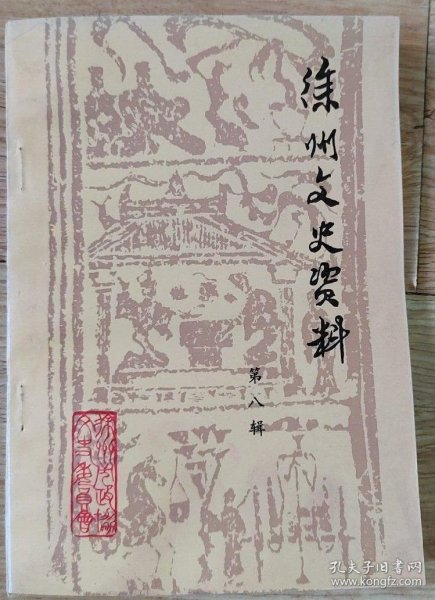 徐州文史资料
第八辑
徐州市政协
文史委员会
孔夫子旧书网
www.kongfz.com